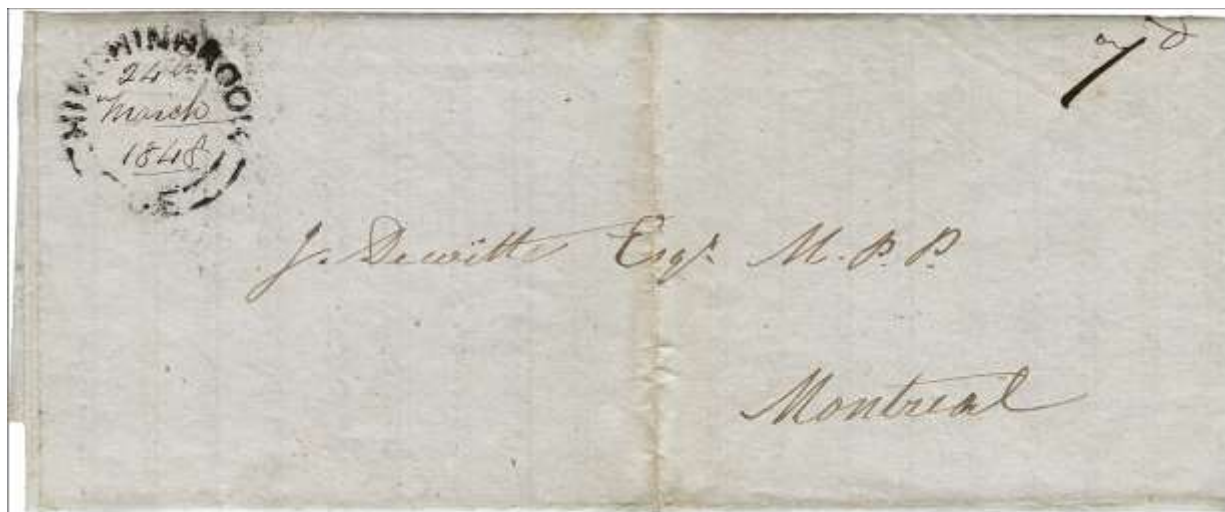 HINCHINBROOK
24th
March
1848
C.E.
7d
J. Dewitte Esqr. M.P.P.
Montreal